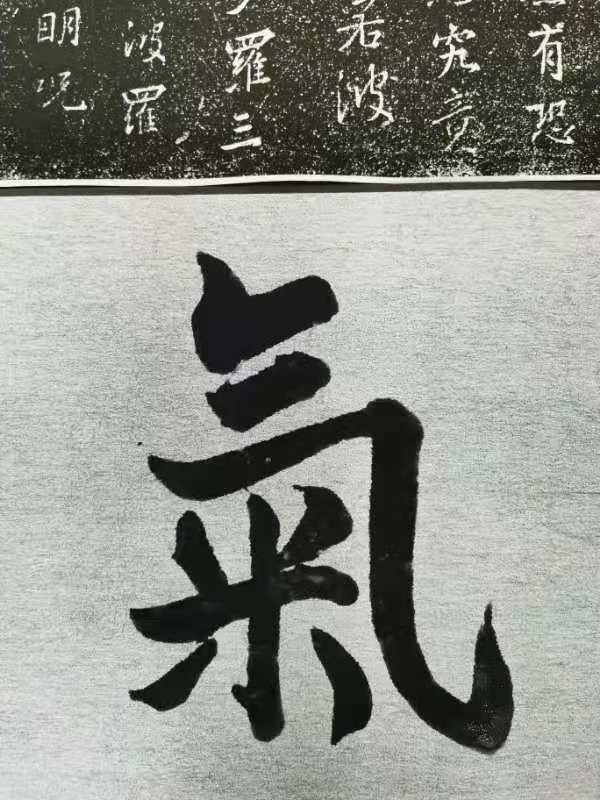 有恐
究竟
若波
羅三
波羅
明呪
氣